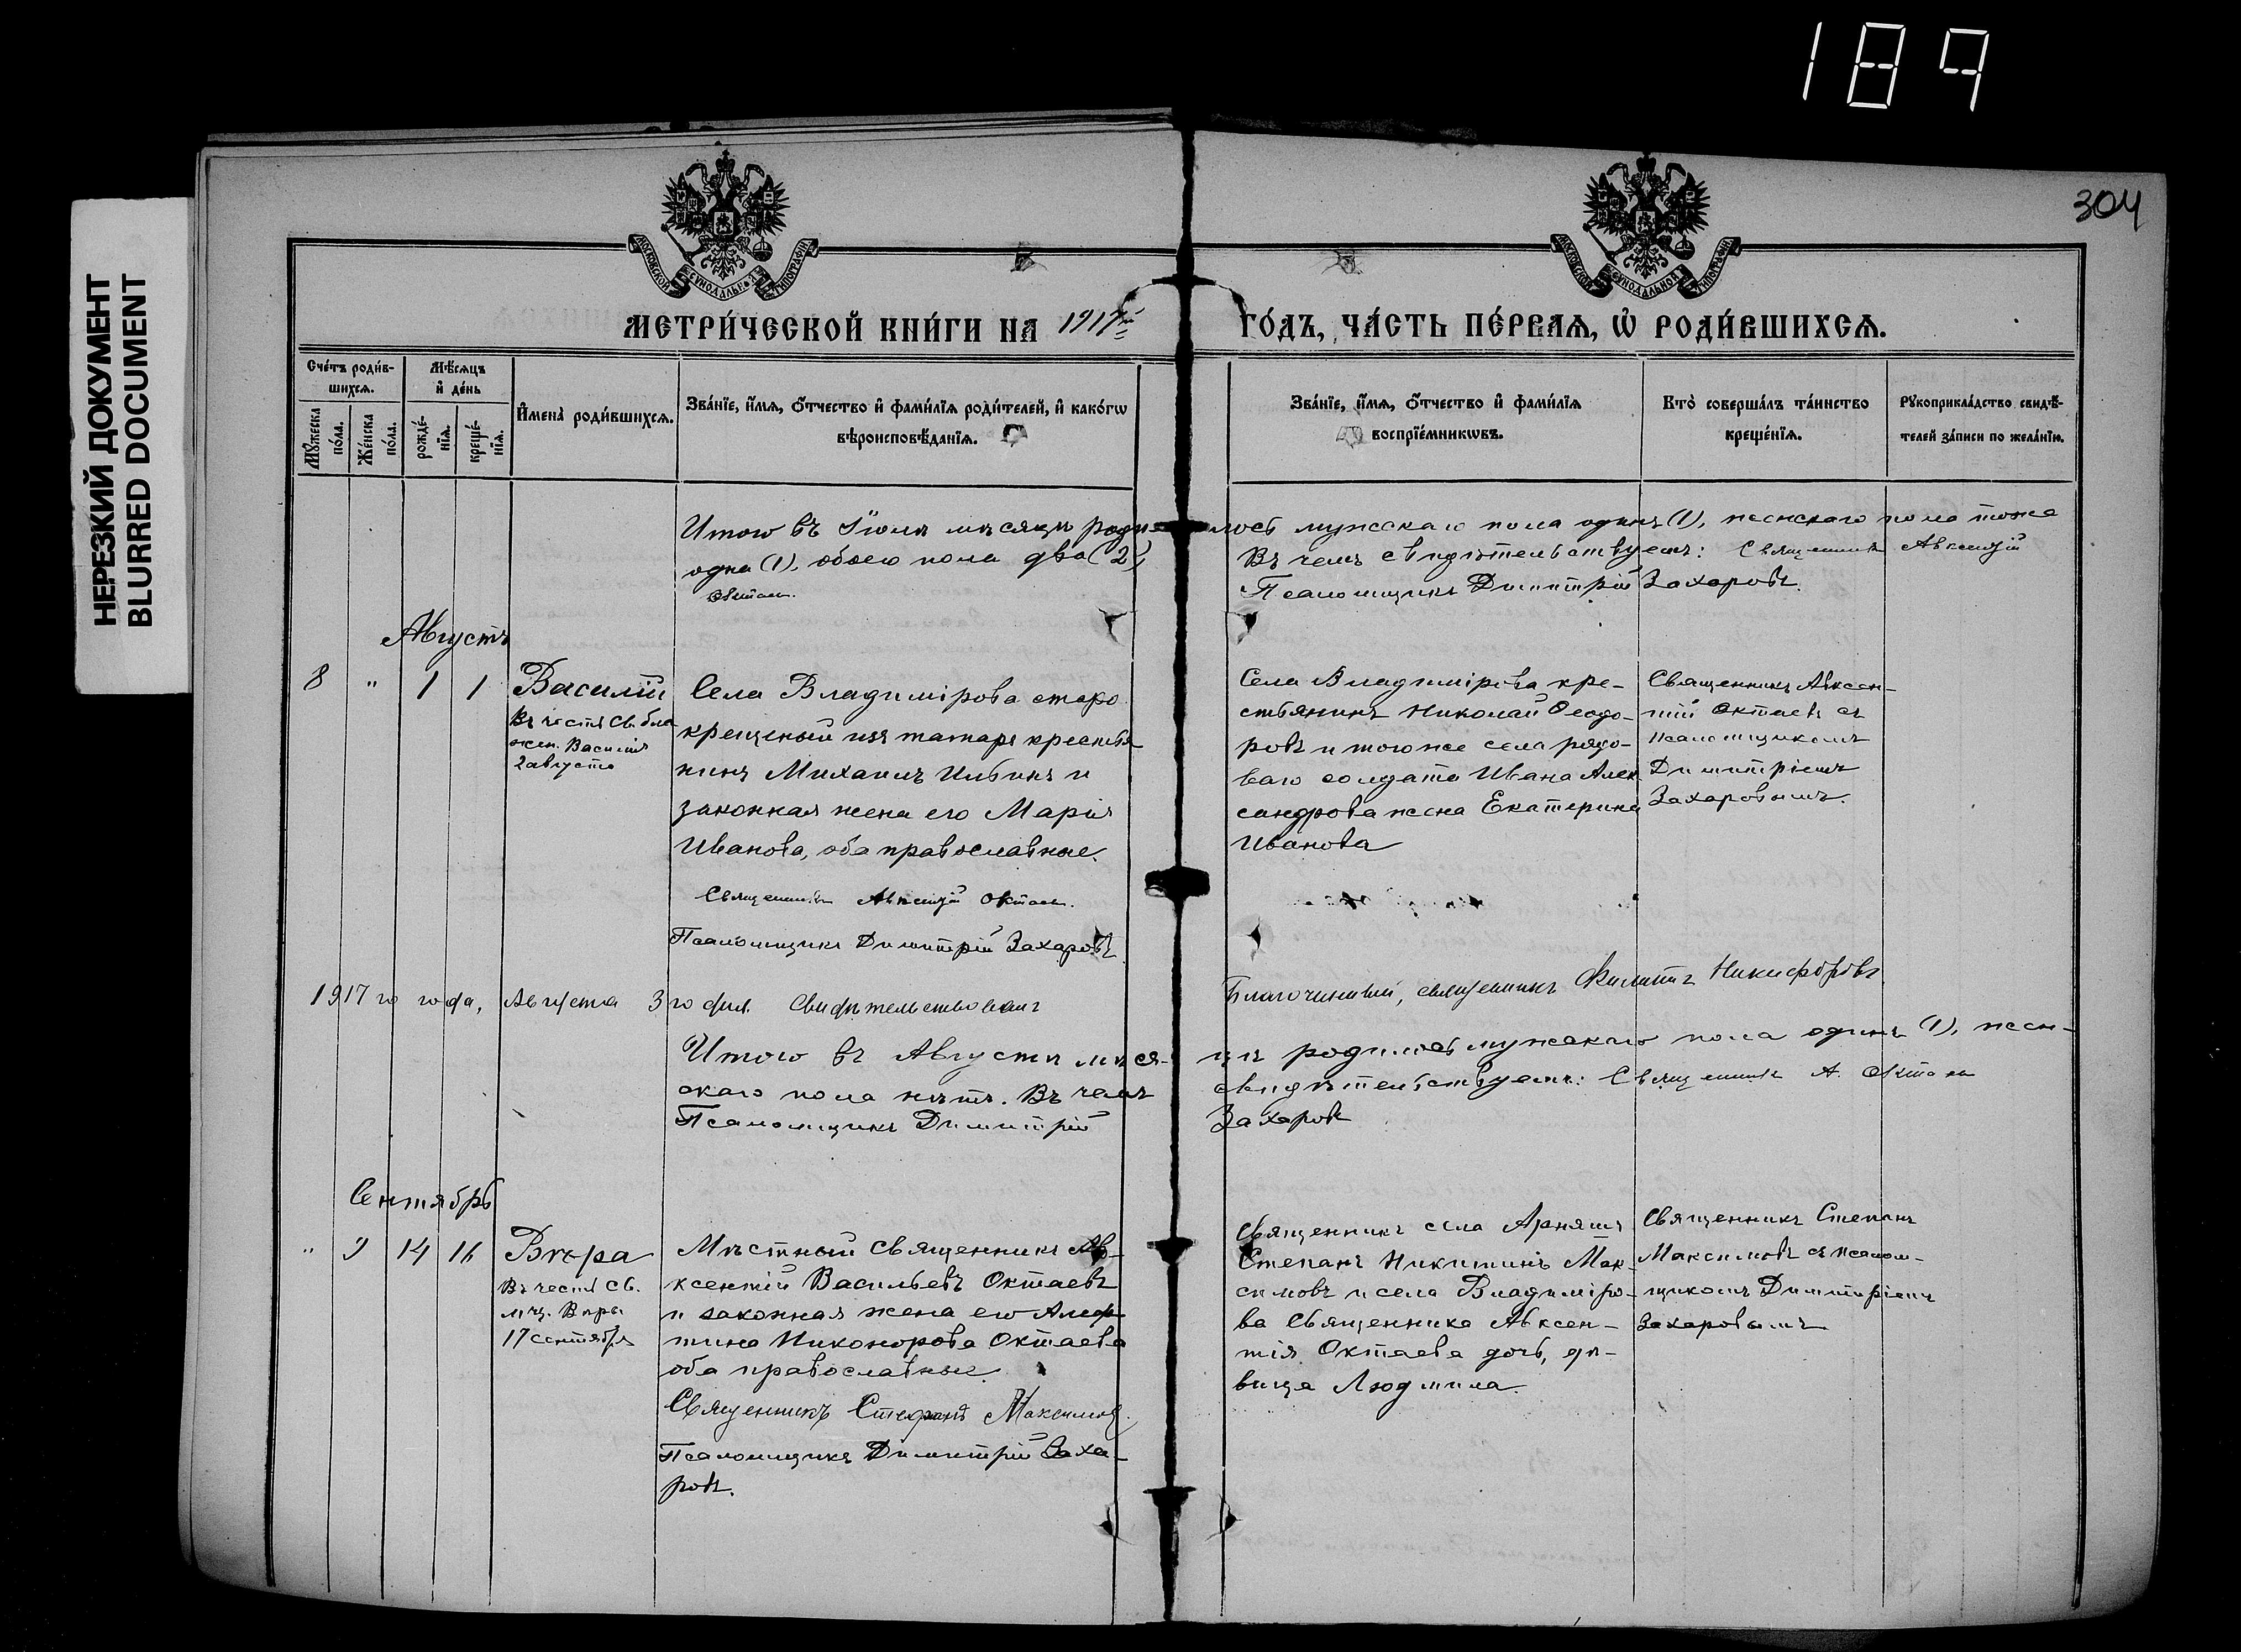 189
304
НЕРЕЗКИЙ ДОКУМЕНТ
BLURRED DOCUMENT
МОСКОВСКОЙ СѴНОДАЛЬНОЙ ТИПОГРАФІИ
МОСКОВСКОЙ СѴНОДАЛЬНОЙ ТИПОГРАФІИ
МЕТРИ́ЧЕСКОЙ КНИ́ГИ НА 1917й ГО́ДЪ, ЧА́СТЬ ПЕ́РВАѦ, Ѡ҆ РОДИ́ВШИХСѦ.
Сче́тъ роди́в-
шихсѧ.
Мꙋ́жеска по́ла.
Же́нска по́ла.
Мѣ́сѧцъ
и҆ де́нь
рожде́-
нїѧ.
креще́-
нїѧ.
И҆мена̀ роди́вшихсѧ.
Зва́нїе, и҆́мѧ, ѻ҆́тчество и҆ фами́лїѧ роди́телей, и҆ како́гѡ
вѣроисповѣ́данїѧ.
Зва́нїе, и҆́мѧ, ѻ҆́тчество и҆ фами́лїѧ
воспрїе́мникѡвъ.
Кто̀ соверша́лъ та́инство
креще́нїѧ.
Рꙋкоприкла́дство свидѣ́-
телей за́писи по жела́нїю.
Итого въ Іюлѣ мѣсяцѣ роди- лось мужскаго пола одинъ (1), женскаго пола тоже
одна (1), обоего пола два (2), Въ чемъ свидѣтельствуемъ: Священникъ Авксентій
Октаевъ. Псаломщикъ Димитрій Захаровъ.
Августъ
8 " 1 1 Василій
Въ честь Св. бла
жен. Василія
2 августа
Села Владимірова старо
крещеный изъ татаръ крестья
нинъ Михаилъ Ильинъ и
законная жена его Марія
Иванова, оба православные.
Священникъ Авксентій Октаевъ.
Псаломщикъ Димитрій Захаровъ
Села Владимірова кре-
стьянинъ Николай Ѳеодо-
ровъ и того же села рядо-
ваго солдата Ивана Алек
сандрова жена Екатерина
Иванова
Священникъ Авксен-
тій Октаевъ съ
псаломщикомъ
Димитріемъ
Захаровымъ.
1917 го года, Августа 3 го дня. Свидѣтельствовалъ Благочинный, священникъ Филиппъ Никифоровъ
Итого въ Августѣ мѣся- цѣ родилось мужскаго пола одинъ (1), жен-
скаго пола нѣтъ. Въ чемъ свидѣтельствуемъ: Священникъ А. Октаевъ
Псаломщикъ Димитрій Захаровъ
Сентябрь
" 9 14 16 Вѣра
Въ честь Св.
мч. Вѣры
17 сентября
Мѣстный священникъ Ав-
ксентій Васильевъ Октаевъ
и законная жена его Алеф
тина Никонорова Октаева
оба православные.
Священникъ Стефанъ Максимовъ.
Псаломщикъ Димитрій Заха-
ровъ.
Священникъ села Арняшъ
Степанъ Никитинъ Мак-
симовъ и села Владиміро-
ва Священника Авксен-
тія Октаева дочь, дѣ-
вица Людмила.
Священникъ Степанъ
Максимовъ съ псалом-
щикомъ Димитріемъ
Захаровымъ